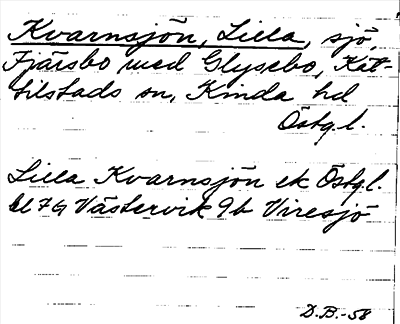 Kvarnsjön, Lilla, sjö,
Fjärsbo med Glysebo, Kät-
tilstads sn, Kinda hd
Östg.l.
Lilla Kvarnsjön ek Östg.l.
bl 79 Västervik 9b Viresjö
D.B.-58